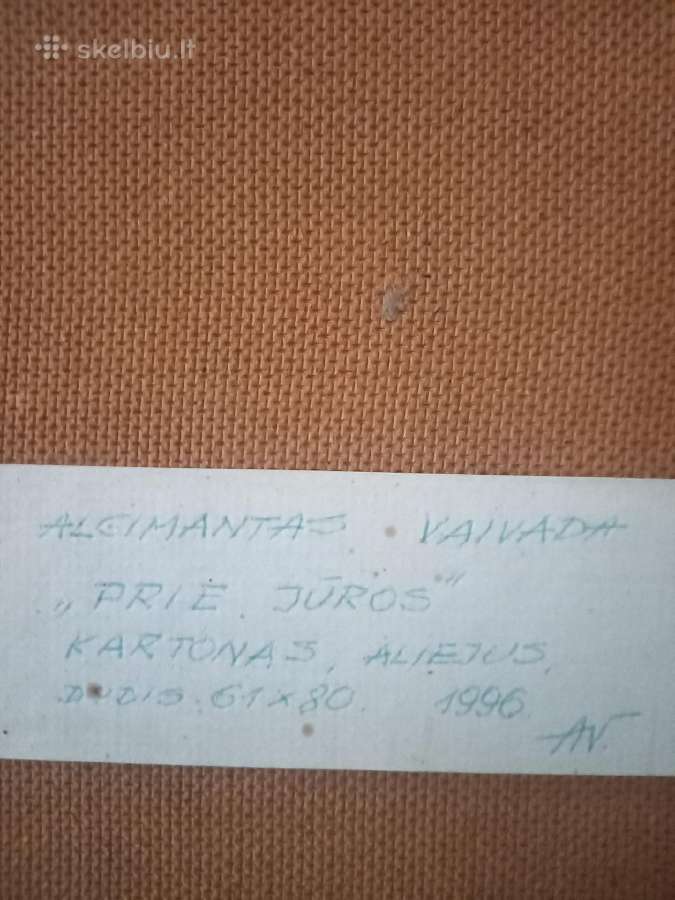 skelbiu.lt
ALGIMANTAS VAIVADA
„PRIE JŪROS"
KARTONAS, ALIEJUS,
DYDIS. 61x80. 1996.
AV.